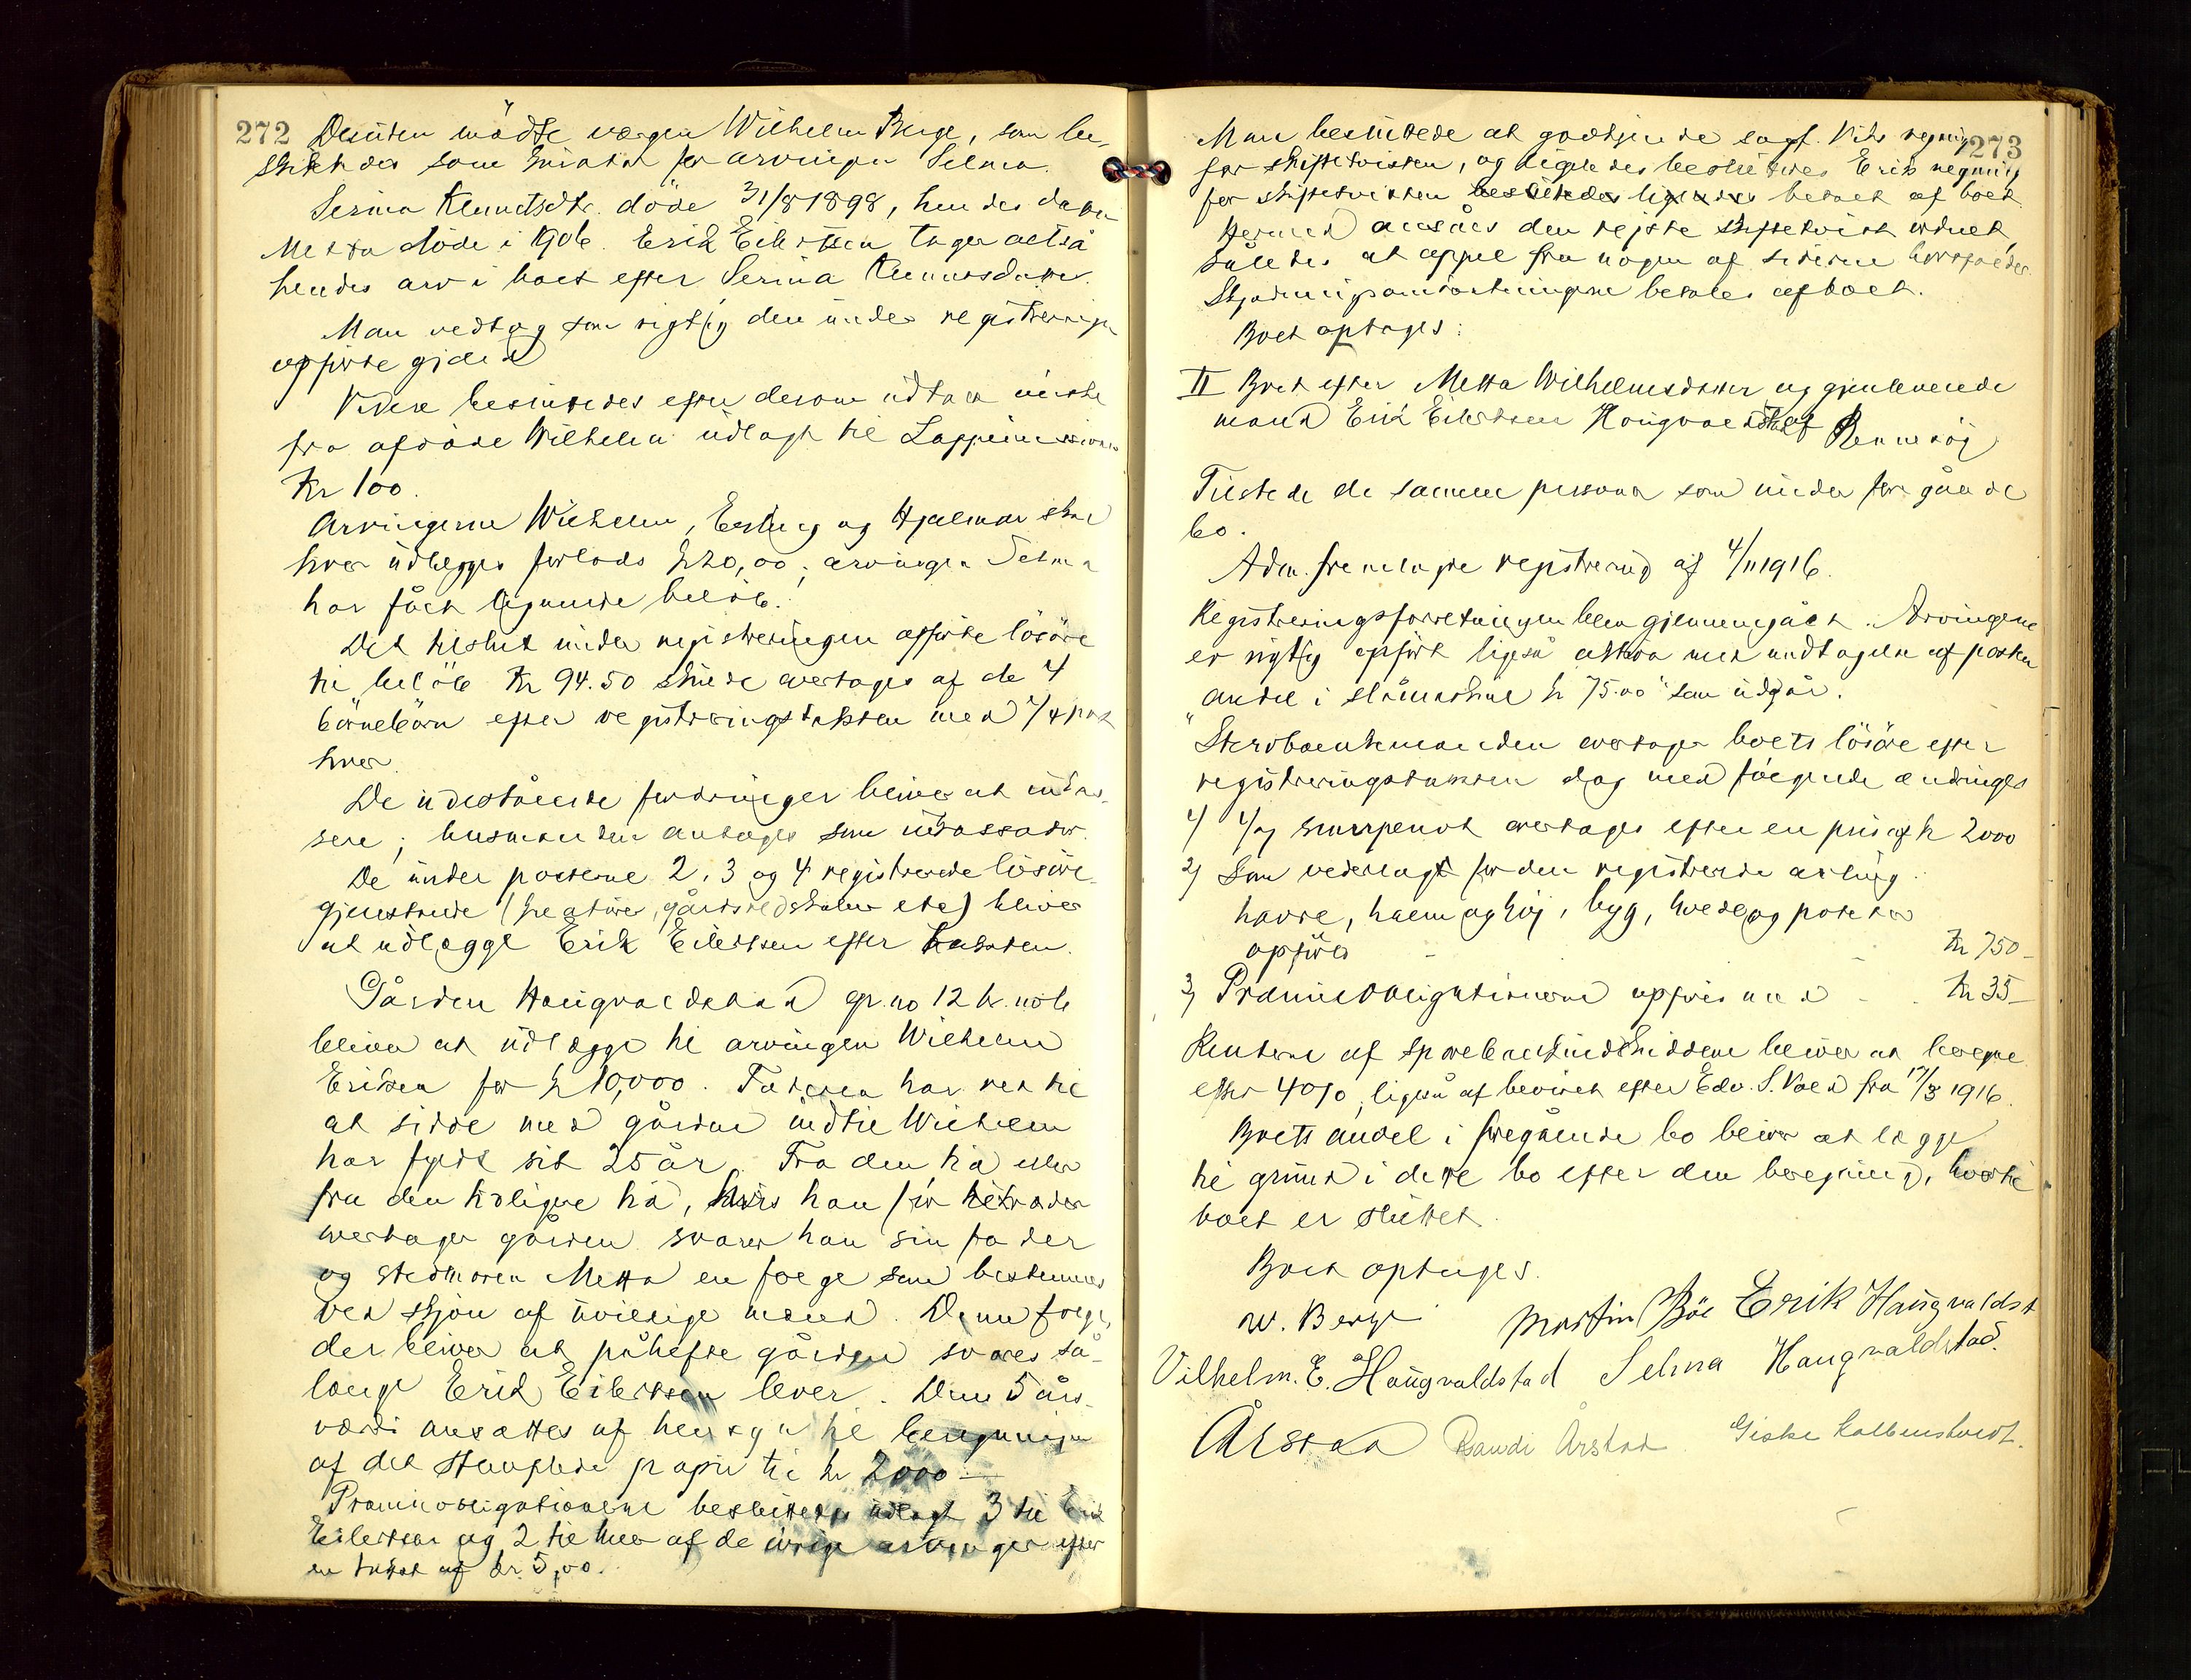 272 Desuten mødte værgen Wilhelm Berge, som be-
skikkedes som kurator for arvingen Selma.
Serina Knudtsdtr. döde 31/8 1898, hendes datter
Metta döde i 1906. Erik Eilertsen tager altså
hendes arv i boet efter Serina Knutsdatter.
Man vedtog som rigtig den under registreringen
opførte gjeld
Videre besluttedes efter derom udtalt ønske
fra afdøde Wilhelm udlagt til Lappemissionen
Kr 100.
Arvingerne Wilhelm, Esther og Hjalmar skal
hver udlægges forlods kr 20,00; arvingen Selma
har fået lignende beløb.
Det tilslut under registreringen opførte løsøre
til beløb Kr 94.50 skulde overtages af de 4
börnebörn efter registreringstaksten med 1/4 part
hver.
De udestående fordringer bliver at indkas-
sere; lensmanden antages som inkassator.
De under posterne 2, 3 og 4 registrerede løsøre-
gjenstande (kreaturer, gårdsredskaber etc) bliver
at udlægge Erik Eilertsen efter taksten.
Gården Haugvaldstad gr. no 12 br. no 6
bliver at udlægge til arvingen Wilhelm
Eriksen for kr 10,000. Faderen har ret til
at sidde med gården indtil Wilhelm
har fyldt sit 25 år. Fra den tid eller
fra den tidligere tid, hvis han før tiltræder
overtager gården svarer han sin fader
og stedmoren Metta en folge som bestemmes
ved skjøn af uvillige mænd. Denne folge,
der bliver at påhefte gården svares så-
længe Erik Eilertsen lever. Dens 5 års
værdi ansættes af hensyn til beregningen
af det stemplede papir til kr 2000 —
Præmieobligationerne besluttedes udlagt 3 til Erik
Eilertsen og 2 til hver af de øvrige arvinger efter
en takst af kr. 5,00.
273
Man besluttede at godkjende sagf. regning
for skiftetvisten, og ligeledes besluttedes Eriks regning
for skiftetvisten besluttedes ligeledes betalt af boet.
Hermed ansåes den rejste skiftetvist ordnet
således at appel fra nogen af siderne bortfalder.
Skjønsomkostningerne betales af boet.
Boet optages:
II Boet efter Metta Wilhelmsdatter og gjenlevende
mand Erik Eilertsen Haugvaldstad af Rennesøy
Tilstede de samme personer som under foregående
bo.
Adm. fremlagde registrering af 4/11 1916.
Registreringsforretningen blev gjennemgået. Arvingerne
er rigtig opført ligeså aktiva med undtagelse af posten
"andel i slåmaskine kr 75.00" som udgår.
Sterboenkemanden overtager boets løsøre efter
registreringstaksten dog med følgende ændringer
1) 1/7 snurpenot overtages efter en pris af kr 2000
2) Som vederlag for den registrerede avling
havre, halm og høj, byg, hvede og poteter
opføres - - Kr 750 -
3) Præmieobligationerne opføres med - - Kr 35 -
Renterne af sparebankindskuddene bliver at beregne
efter 4%, ligeså af beviset efter Edv. S. Vold fra 17/3 1916.
Boets andel i foregående bo bliver at lægge
til grund i dette bo efter den beregning, hvortil
boet er sluttet.
Boet optages.
W. Berge Martin Bøe Erik Haugvaldst
Vilhelm. E. Haugvaldstad Selma Haugvaldstad.
Årstad Randi Årstad Giske